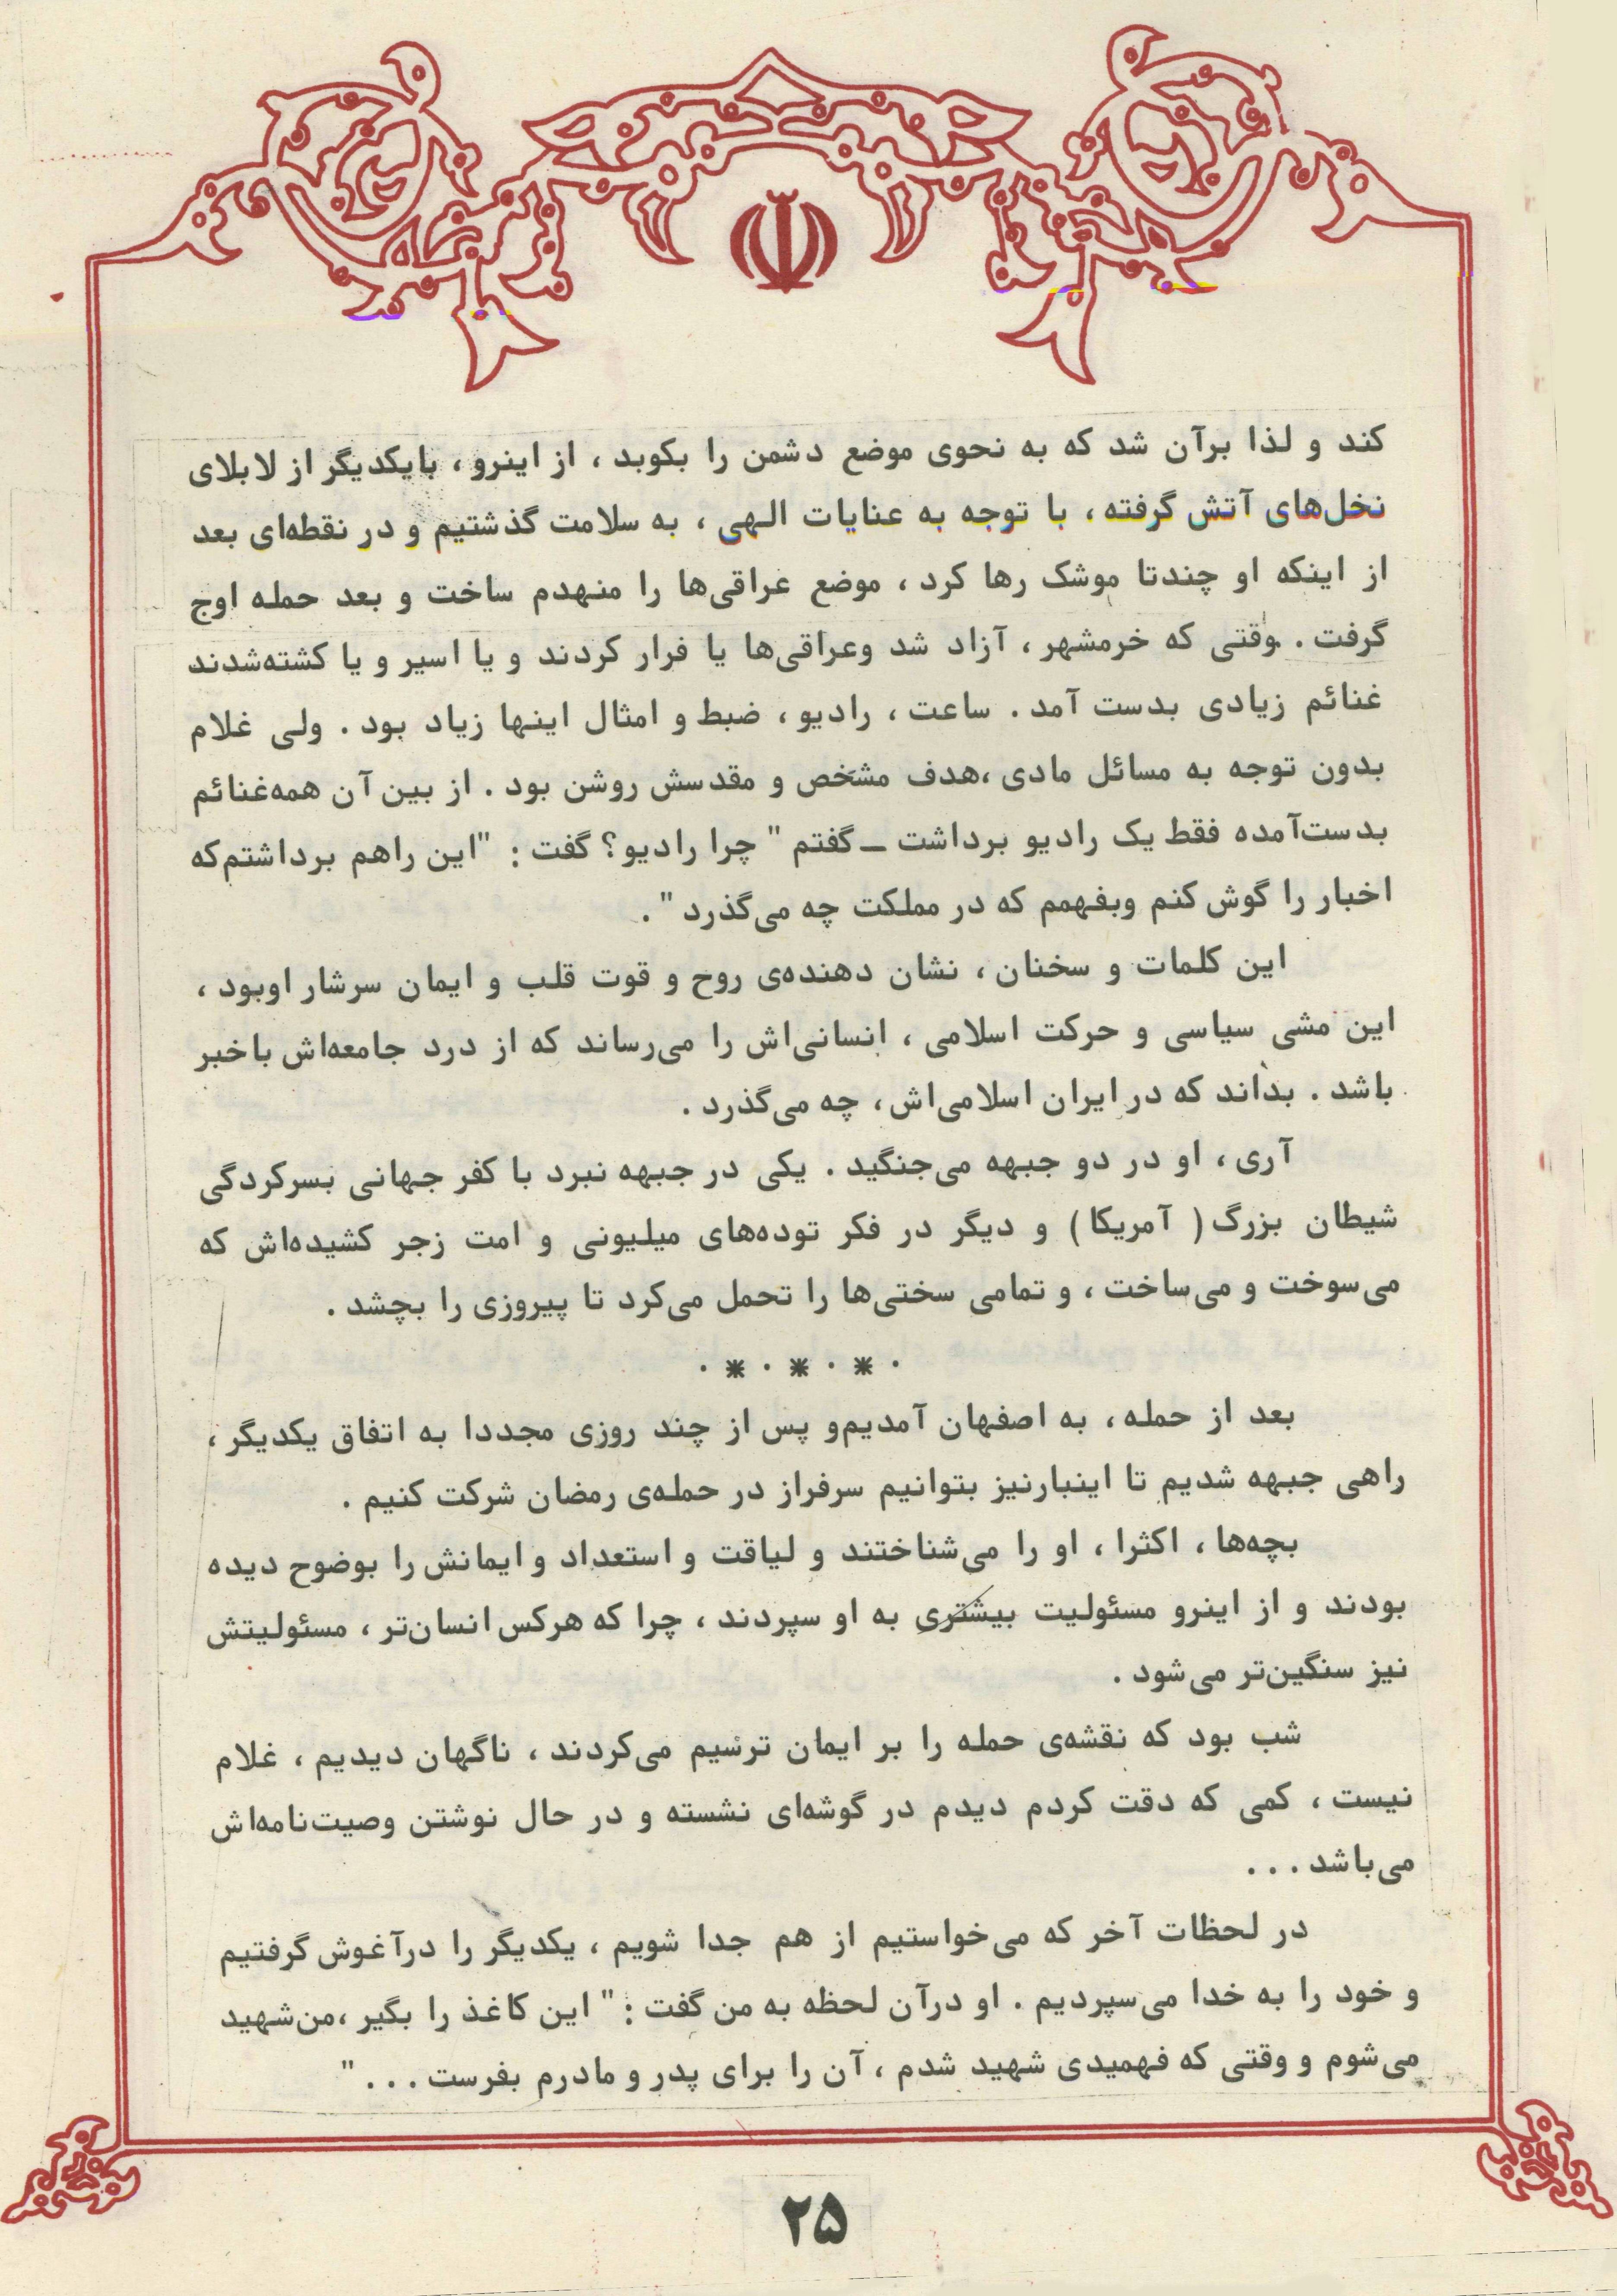 کند و لذا برآن شد که به نحوی موضع دشمن را بکوبد ، از اینرو ، بایکدیگر از لابلای
نخل‌های آتش گرفته ، با توجه به عنایات الهی ، به سلامت گذشتیم و در نقطه‌ای بعد
از اینکه او چندتا موشک رها کرد ، موضع عراقی‌ها را منهدم ساخت و بعد حمله اوج
گرفت . وقتی که خرمشهر ، آزاد شد وعراقی‌ها یا فرار کردند و یا اسیر و یا کشته‌شدند
غنائم زیادی بدست آمد . ساعت ، رادیو ، ضبط و امثال اینها زیاد بود . ولی غلام
بدون توجه به مسائل مادی ،هدف مشخص و مقدسش روشن بود . از بین آن همه‌غنائم
بدست‌آمده فقط یک رادیو برداشت ــ گفتم " چرا رادیو؟ گفت : "این راهم برداشتم‌که
اخبار را گوش کنم وبفهمم که در مملکت چه می‌گذرد " .
این کلمات و سخنان ، نشان دهنده‌ی روح و قوت قلب و ایمان سرشار اوبود ،
این مشی سیاسی و حرکت اسلامی ، انسانی‌اش را می‌رساند که از درد جامعه‌اش باخبر
باشد . بداند که در ایران اسلامی‌اش ، چه می‌گذرد .
آری ، او در دو جبهه می‌جنگید . یکی در جبهه نبرد با کفر جهانی بسرکردگی
شیطان بزرگ ( آمریکا ) و دیگر در فکر توده‌های میلیونی و امت زجر کشیده‌اش که
می‌سوخت و می‌ساخت ، و تمامی سختی‌ها را تحمل می‌کرد تا پیروزی را بچشد .
. * . * . * .
بعد از حمله ، به اصفهان آمدیم‌و پس از چند روزی مجددا به اتفاق یکدیگر ،
راهی جبهه شدیم تا اینبارنیز بتوانیم سرفراز در حمله‌ی رمضان شرکت کنیم .
بچه‌ها ، اکثرا ، او را می‌شناختند و لیاقت و استعداد و ایمانش را بوضوح دیده
بودند و از اینرو مسئولیت بیشتری به او سپردند ، چرا که هرکس انسان‌تر ، مسئولیتش
نیز سنگین‌تر می‌شود .
شب بود که نقشه‌ی حمله را بر ایمان ترسیم می‌کردند ، ناگهان دیدیم ، غلام
نیست ، کمی که دقت کردم دیدم در گوشه‌ای نشسته و در حال نوشتن وصیت‌نامه‌اش
می‌باشد . . .
در لحظات آخر که می‌خواستیم از هم جدا شویم ، یکدیگر را درآغوش گرفتیم
و خود را به خدا می‌سپردیم . او درآن لحظه به من گفت : " این کاغذ را بگیر ،من‌شهید
می‌شوم و وقتی که فهمیدی شهید شدم ، آن را برای پدر و مادرم بفرست . . . "
۲۵